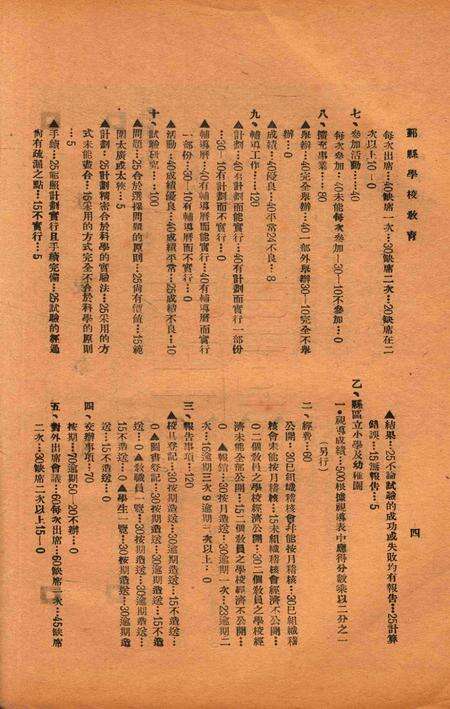 鄞縣學校教育
每次出席…40缺席一次…30缺席二次…20缺席在二
次以上10－0
七、參加活動……40
每次參加…40未能每次參加－30－10不參加…0
八、擴充事業…80
舉辦…40完全舉辦…40一部外舉辦30－10完全不舉
辦…0
成績…40優良…40平常24不良…8
九、輔導工作……120
▲計劃…40有計劃而能實行…40有計劃而實行一部份
…30－10有計劃而不實行…0
▲輔導曆…40有輔導曆而能實行…40有輔導曆而實行
一部份…30－10有輔導曆而不實行…0
▲活動…40成績優良…40成績平常…25成績不良…10
十、試驗研究……100
▲問題…25合於選擇問題的原則…25尚有價值…15範
圍太廣或太狹…5
▲計劃…25計劃精密合於科學的實驗法…25采用的方
式未能盡合…15采用的方式完全不合於科學的原則
…5
▲手續…25能照計劃實行且手續完備…25試驗的經過
尚有疏漏之點…15不實行…5
四
▲結果…25不論試驗的成功或失敗均有報告…25計算
錯誤…15無報告…5
乙、縣區立小學及幼稚園
一、視導成績…500根據視導表中應得分數乘以二分之一
（另行）
二、經費…60
公開…30已組織稽核會并能按月稽核…30已組織稽
核會未能按月稽核…15未組織稽核會經濟不公開…
0二個教員之學校經濟公開…30二個教員之學校經
濟未能全部公開…15二個教員之學校經濟不公開…
0▲報銷…30按月造送…30逾期一次…23逾期二
次…16逾期三次9逾期三次以上…0
三、報告事項…120
▲校具登記…30按期造送…30逾期造送…15不造送…
0▲圖書登記…30按期造送…30逾期造送…15不造
送…0▲教職員一覽…30按期造送…30逾期造送…
15不造送…0▲學生一覽…30按期造送…30逾期造
送…15不造送…0
四、交辦事項…70
按期…70逾期50－20不辦…0
五、對外出席會議…60每次出席…60缺席一次…45缺席
二次…30缺席二次以上15－0